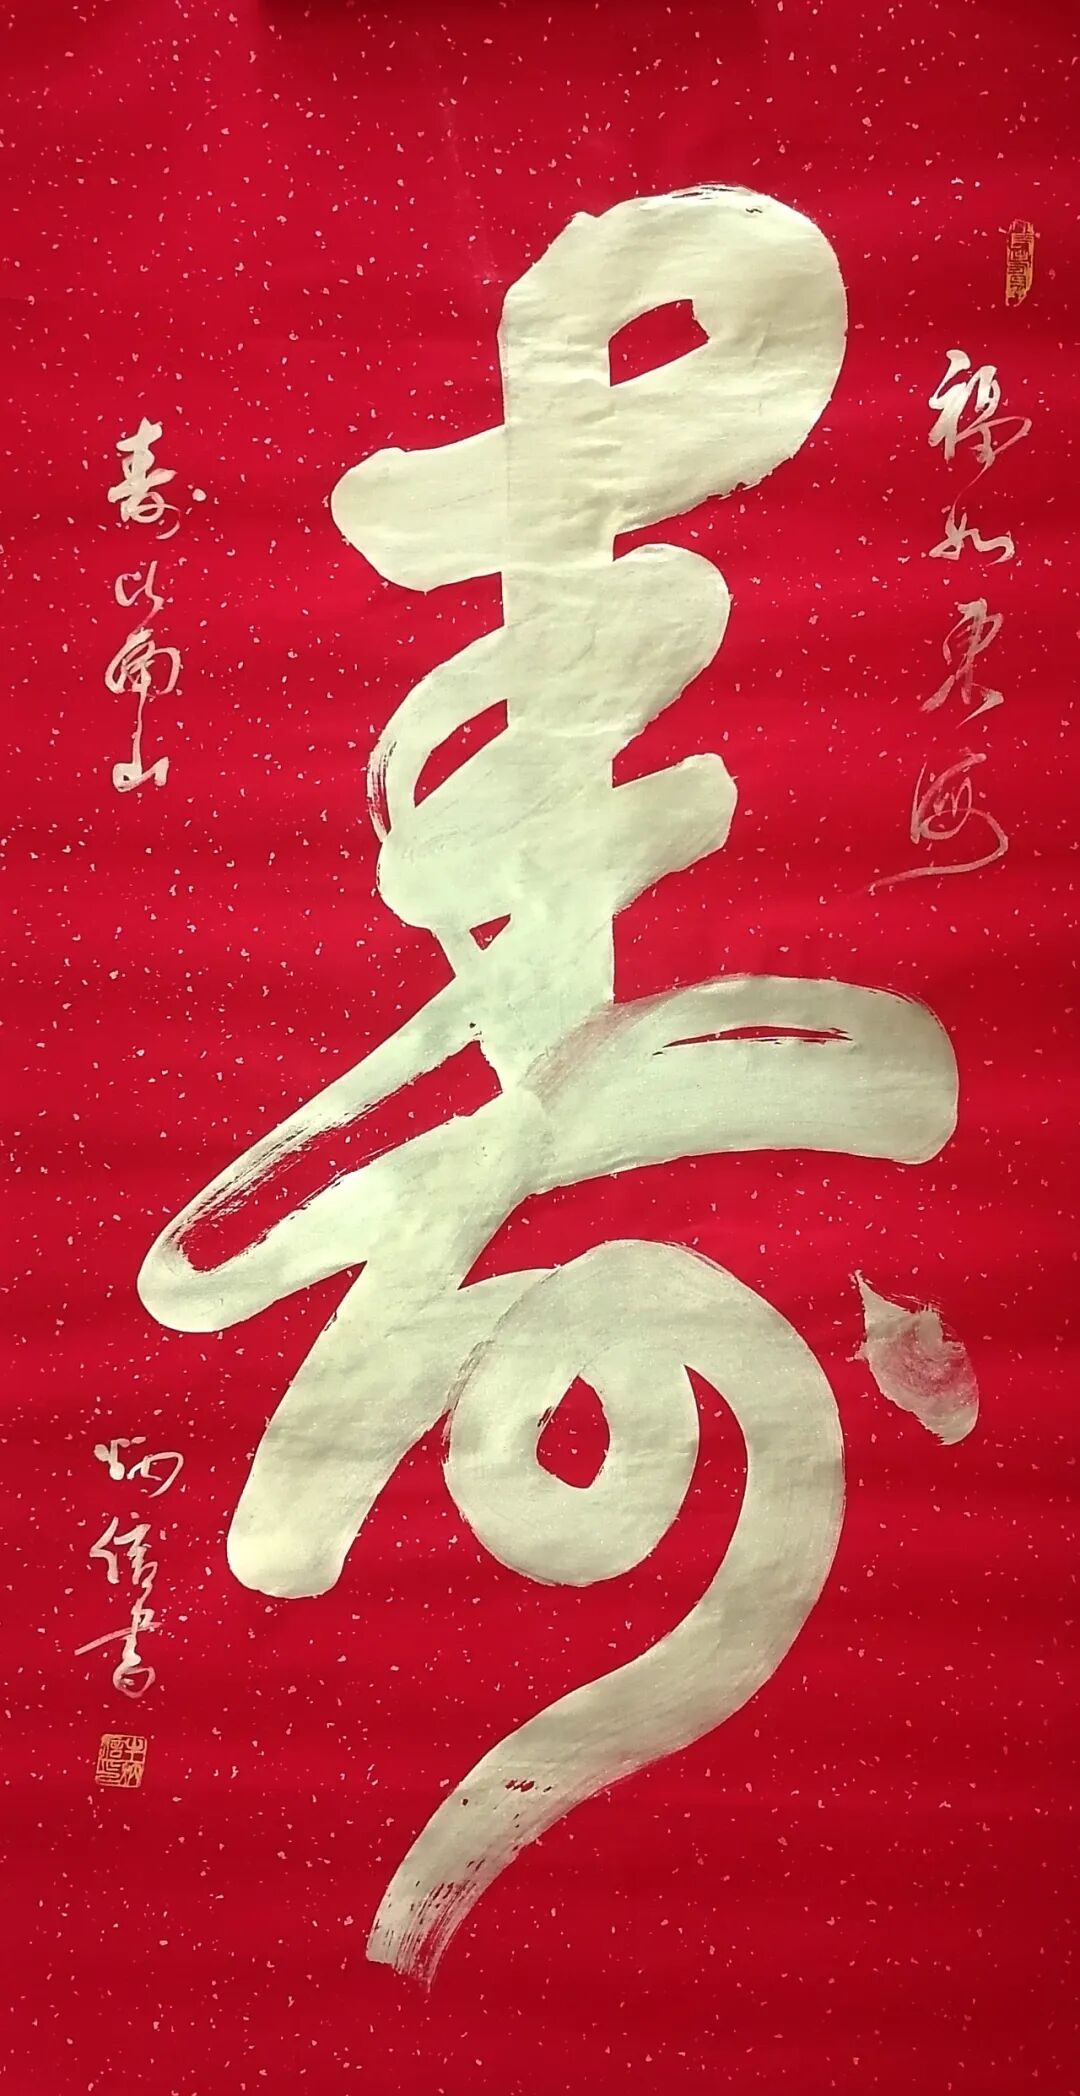 福如东海
寿
寿比南山
炳信书